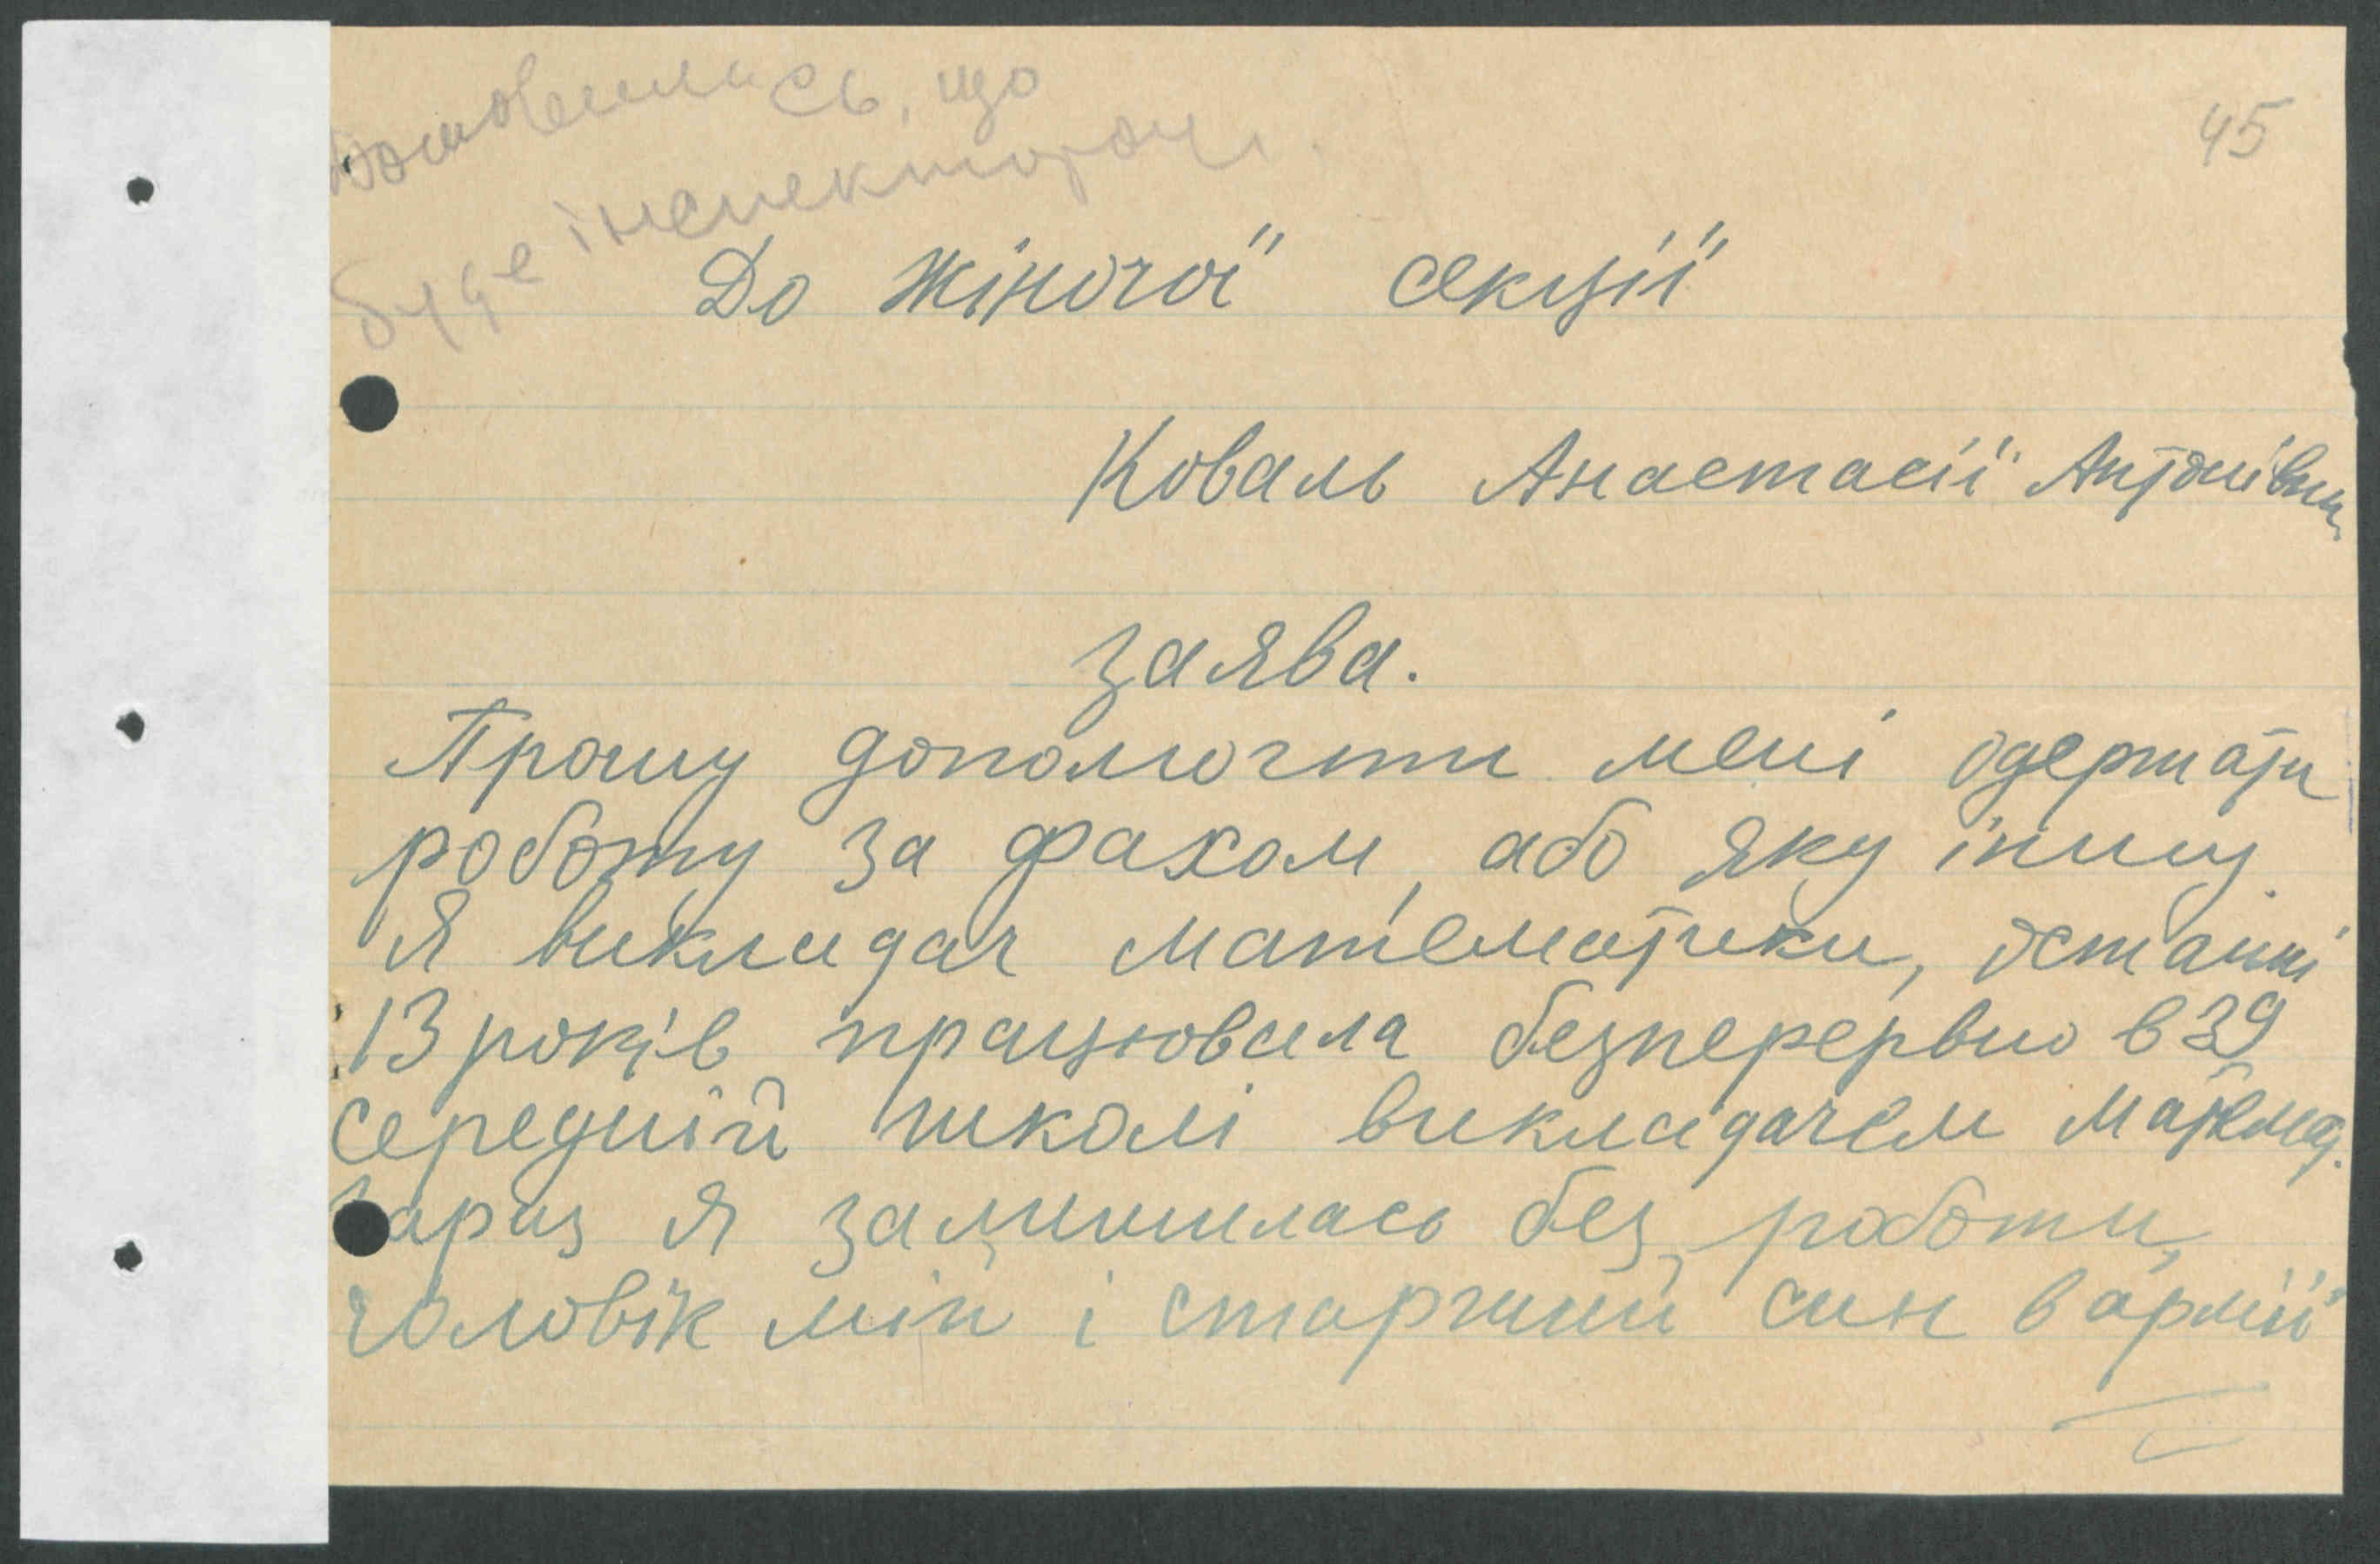 Домовились, що
буде інспектором.
45
До Жіночої секції
Коваль Анастасії Антонівни
Заява.
Прошу допомогти мені одержати
роботу за фахом, або яку іншу.
Я викладач математики, останні
13 років працювала безперервно в 39
середній школі викладачем математ.
Зараз я залишилась без роботи,
чоловік мій і старший син в армії